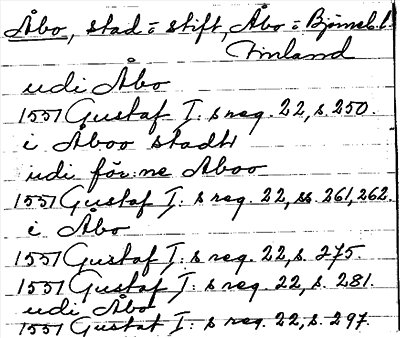 Åbo, stad = stift, Åbo = Björneb. l.
Finland
udi Åbo
1551 Gustaf I: s reg. 22, s. 250.
i Åboo stadh
udi för:ne Aboo
1551 Gustaf I: s reg. 22, ss. 261, 262.
i Åbo
1551 Gustaf I: s reg. 22, s. 275
1551 Gustaf I: s reg. 22, s. 281.
udi Åbo
1551 Gustaf I: s reg. 22, s. 297.